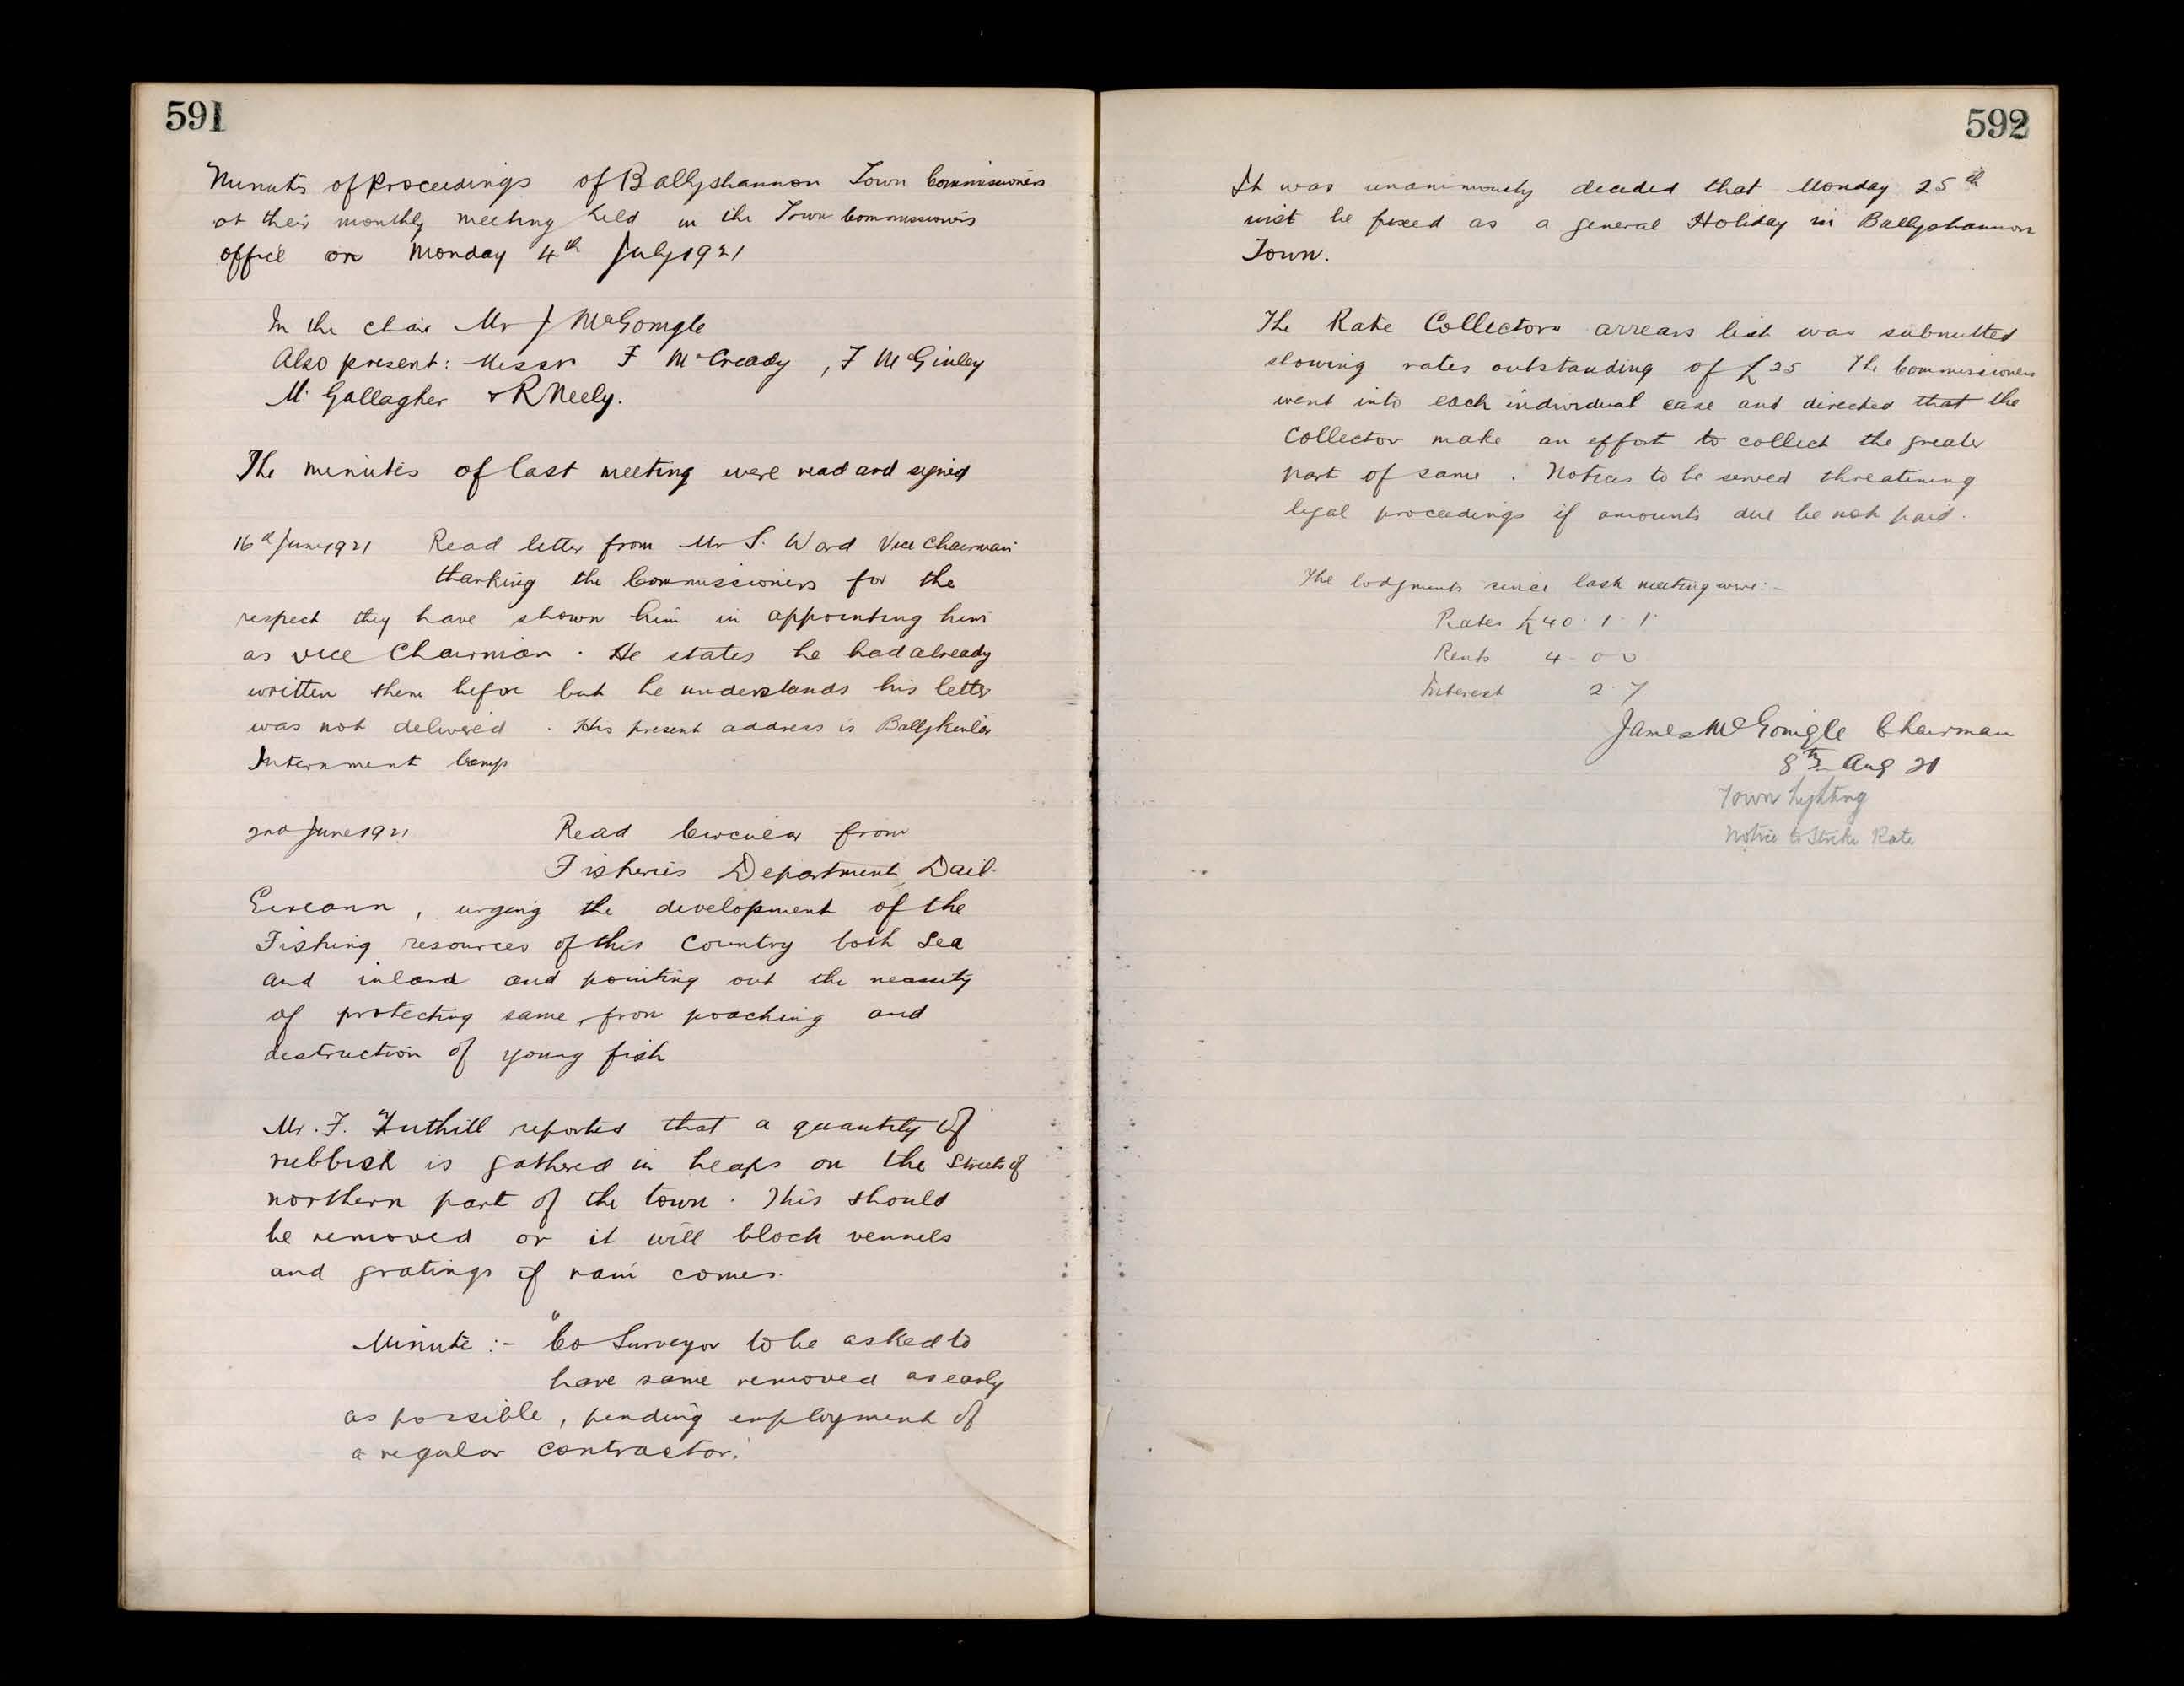 591
Minutes of Proceedings of Ballyshannon Town Commissioners
at their monthly meeting held in the Town Commissioners
office on Monday 4th July 1921
In the chair Mr J McGonigle
Also present: Messrs F McCready, F McGinley
M. Gallagher & R Neely.
The minutes of last meeting were read and signed
16th June 1921 Read letter from Mr S. Ward Vice Chairman
thanking the Commissioners for the
respect they have shown him in appointing him
as vice Chairman. He states he had already
written them before but he understands his letter
was not delivered. His present address is Ballykinlar
Internment Camp
2nd June 1921 Read Circular from
Fisheries Department, Dail
Eireann, urging the development of the
Fishing resources of this Country both Sea
and inland and pointing out the necessity
of protecting same from poaching and
destruction of young fish
Mr. F. Tuthill reported that a quantity of
rubbish is gathered in heaps on the Streets of
northern part of the town. This should
be removed or it will block vennels
and gratings if rain comes.
Minute:- "Co Surveyor to be asked to
have same removed as early
as possible, pending employment of
a regular contractor."
592
It was unanimously decided that Monday 25th
inst be fixed as a general Holiday in Ballyshannon
Town.
The Rate Collectors arrears list was submitted
showing rates outstanding of £25 The Commissioners
went into each individual case and directed that the
Collector make an effort to collect the greater
part of same. Notices to be served threatining
legal proceedings if amounts due be not paid.
The lodgments since last meeting were:-
Rates £40. 1. 1.
Rents 4-0 0
Interest 2. 7
James McGonigle Chairman
8th Aug 21
Town Lighting
Notice to Strike Rate